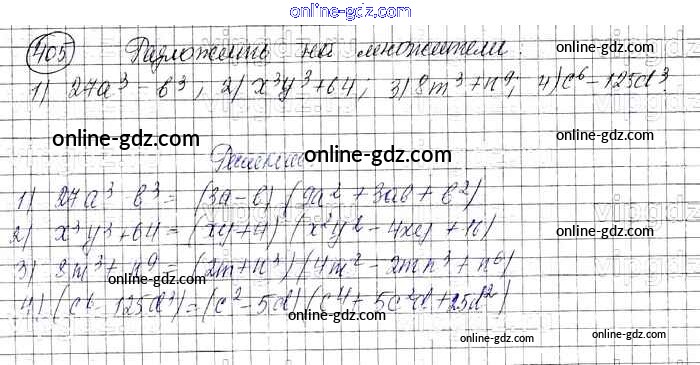 online-gdz.com
405 Разложить на множители:
online-gdz.com
1) 27a³ - b³; 2) x³y³+64; 3) 8m³+n⁹; 4) c⁶-125d³
online-gdz.com
online-gdz.com
online-gdz.com
Решение:
1) 27a³ b³ = (3a-b) (9a² + 3ab + b²)
2) x³y³+64 = (xy+4) (x²y² - 4xy + 16)
3) 8m³ + n⁹ = (2m+n³) (4m² - 2mn³ + n⁶)
4) (c⁶ - 125d³) = (c² - 5d) (c⁴ + 5c²d + 25d²)
online-gdz.com
online-gdz.com
online-gdz.com
online-gdz.com